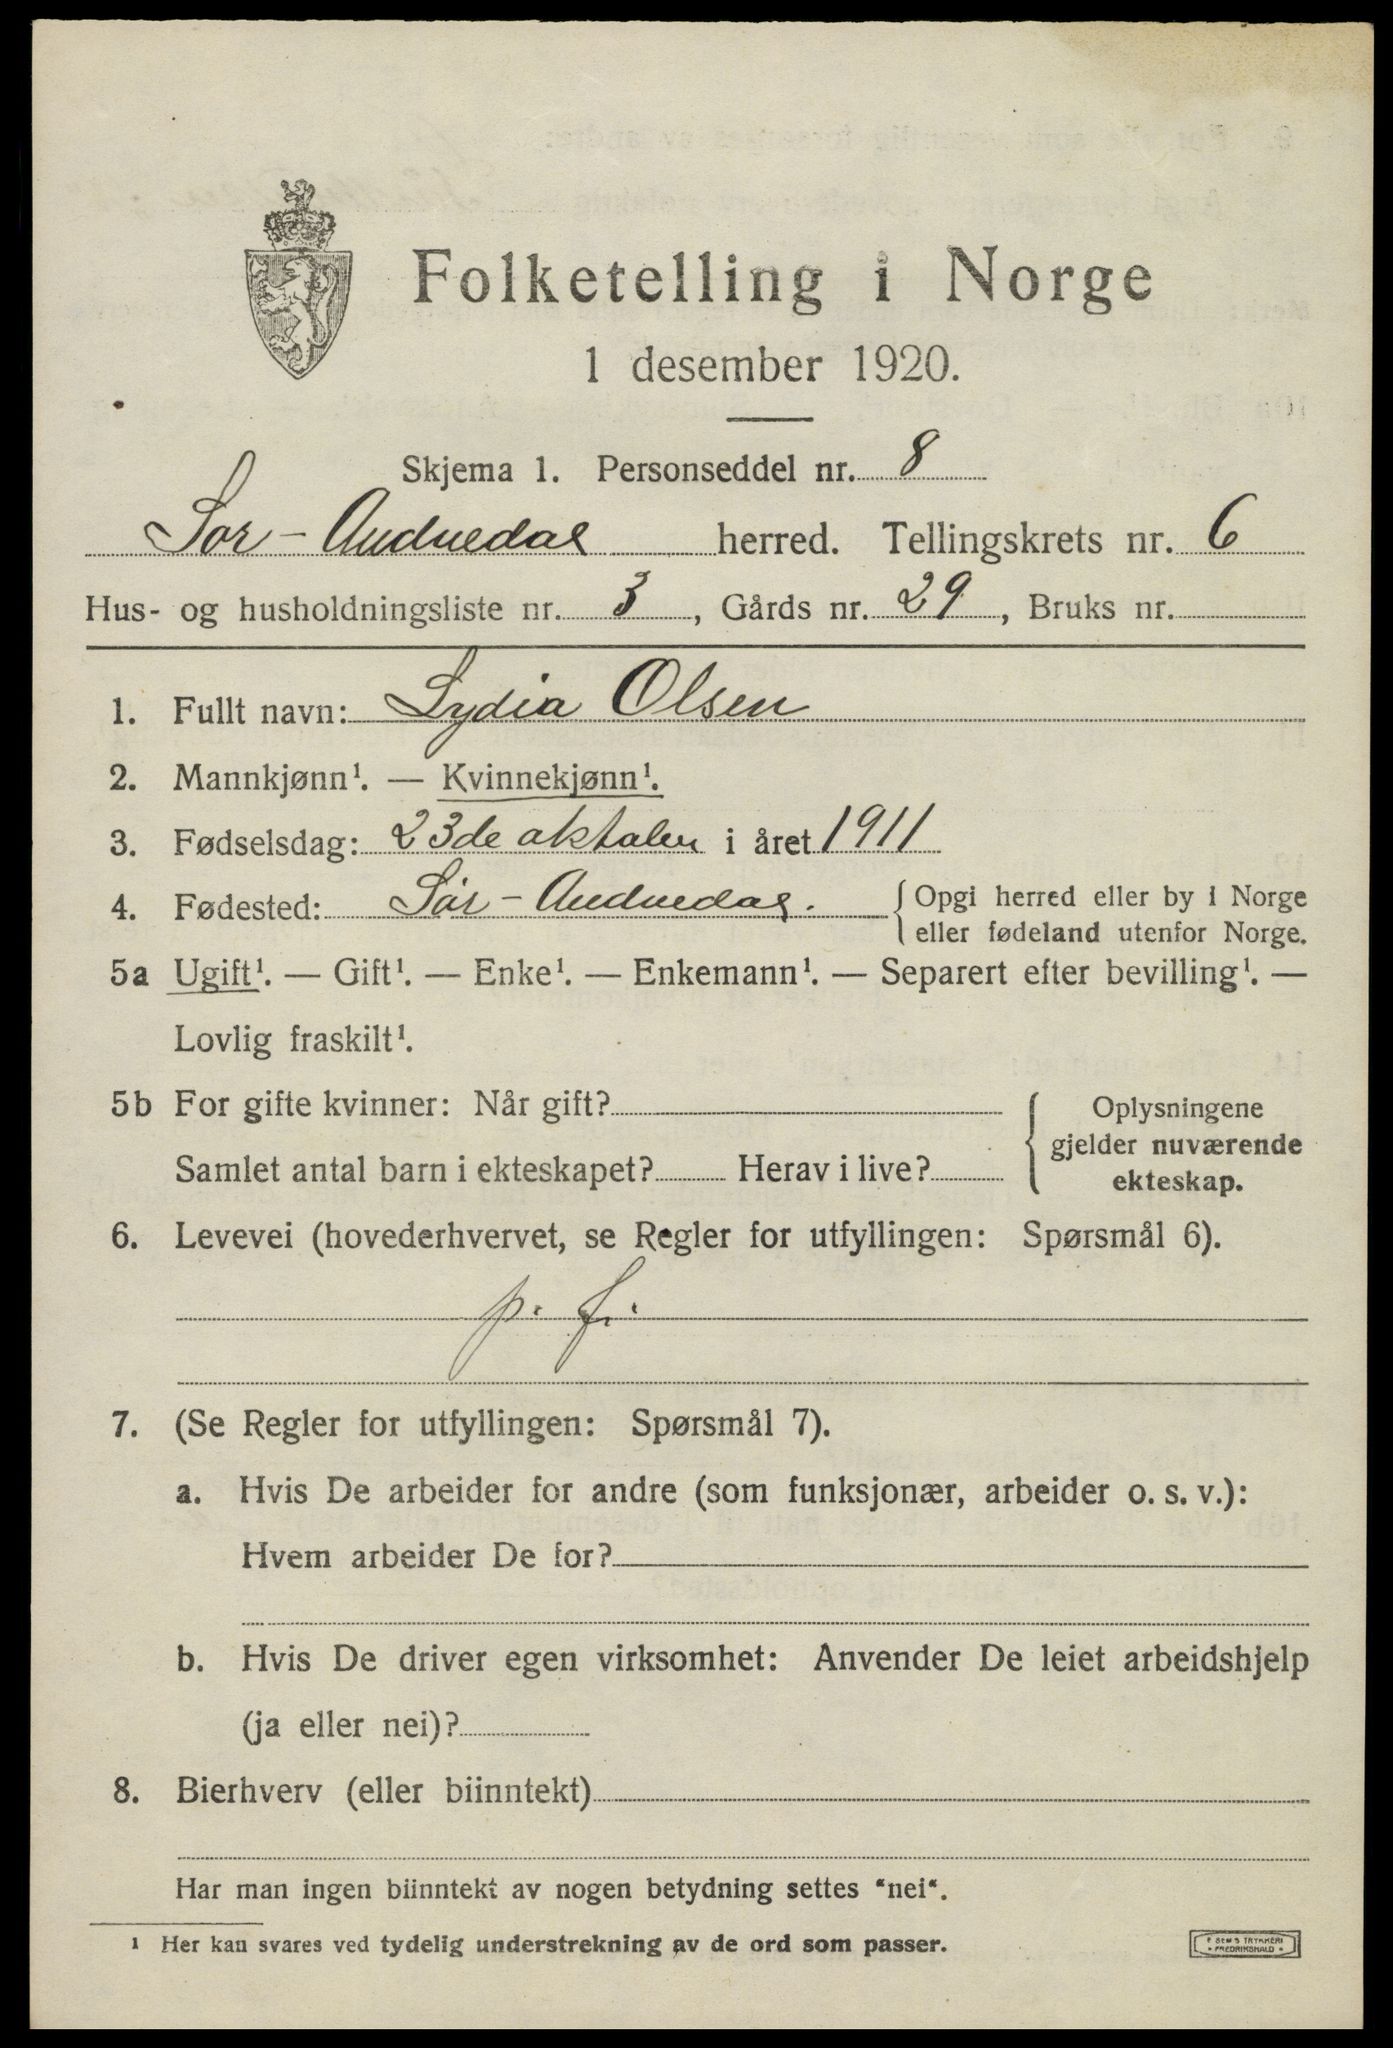 Folketelling i Norge
1 desember 1920.
Skjema 1. Personseddel nr. 8
Sør-Audnedal herred. Tellingskrets nr. 6
Hus- og husholdningsliste nr. 3, Gårds nr. 29, Bruks nr.
1. Fullt navn: Lydia Olsen
2. Mannkjønn¹. — Kvinnekjønn¹.
3. Fødselsdag: 23de oktober i året 1911
4. Fødested: Sør-Audnedal. { Opgi herred eller by i Norge
eller fødeland utenfor Norge.
5a Ugift¹. — Gift¹. — Enke¹. — Enkemann¹. — Separert efter bevilling¹. —
Lovlig fraskilt¹.
5b For gifte kvinner: Når gift?
Samlet antal barn i ekteskapet? Herav i live?
Oplysningene
gjelder nuværende
ekteskap.
6. Levevei (hovederhvervet, se Regler for utfyllingen: Spørsmål 6).
p. f.
7. (Se Regler for utfyllingen: Spørsmål 7).
a. Hvis De arbeider for andre (som funksjonær, arbeider o. s. v.):
Hvem arbeider De for?
b. Hvis De driver egen virksomhet: Anvender De leiet arbeidshjelp
(ja eller nei)?
8. Bierhverv (eller biinntekt)
Har man ingen biinntekt av nogen betydning settes "nei".
¹ Her kan svares ved tydelig understrekning av de ord som passer.
F SEM'S TRYKKERI
• FREDRIKSHALD •